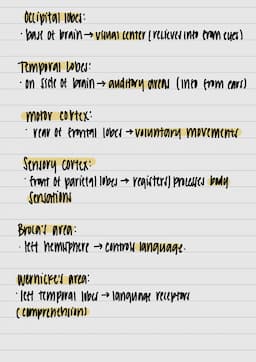 Occipital lobes:
· base of brain → visual center (recieves info from eyes)
Temporal lobes:
· on side of brain → auditory areas (info from ears)
motor cortex:
· rear of frontal lobes → voluntary movements
Sensory cortex:
· front of parietal lobes → registers/processes body
sensations
Broca's area:
· left hemisphere → controls language.
Wernicke's area:
· left temporal lobes → language receptors
(comprehension)